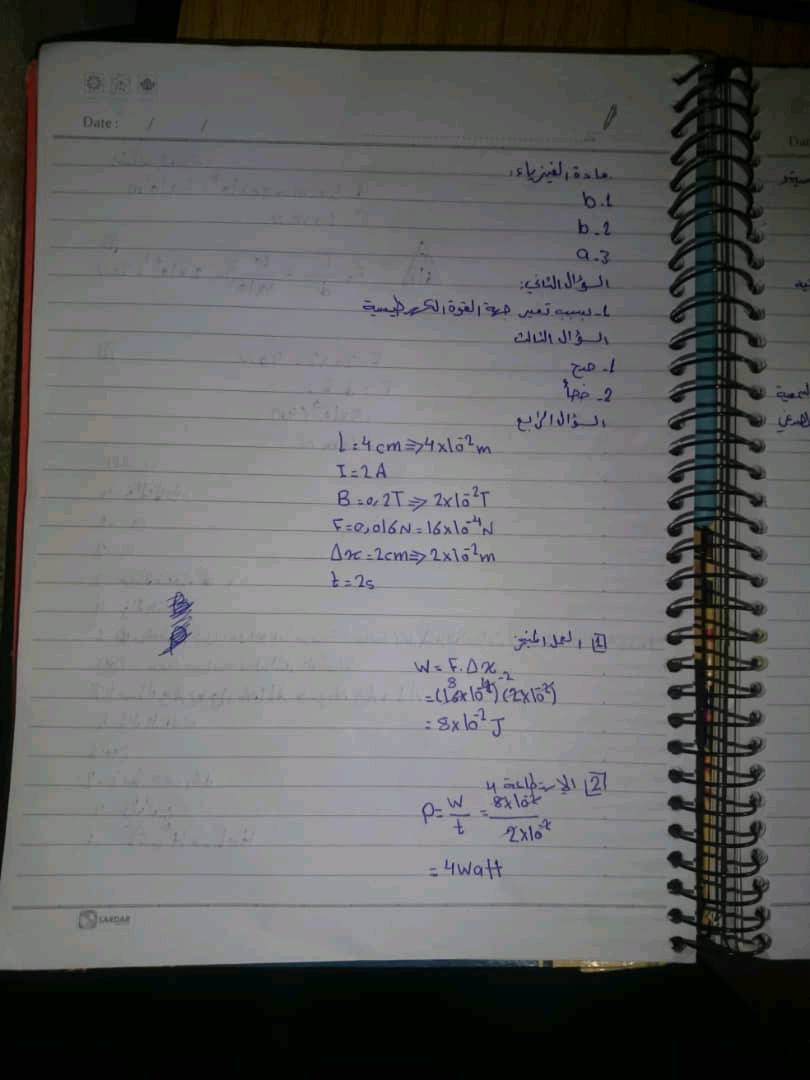 Date: / /
مادة الفيزياء:
b.1
b.2
a.3
السؤال الثاني:
1- بسبب تغير جهة القوة الكهرطيسية
السؤال الثالث
1- صح
2- خطأ
السؤال الرابع
L=4cm⇒4×10⁻²m
I=2A
B=0,2T⇒2×10⁻²T
F=0,016N=16×10⁻⁴N
Δx=2cm⇒2×10⁻²m
t=2s
1 العمل المنجز
W=F.Δx
=(16×10⁻⁴)(2×10⁻²)
=8×10⁻²J
2 الإستطاعة
P=W/t=8×10⁻²/2×10⁻²
=4watt
SARDAR